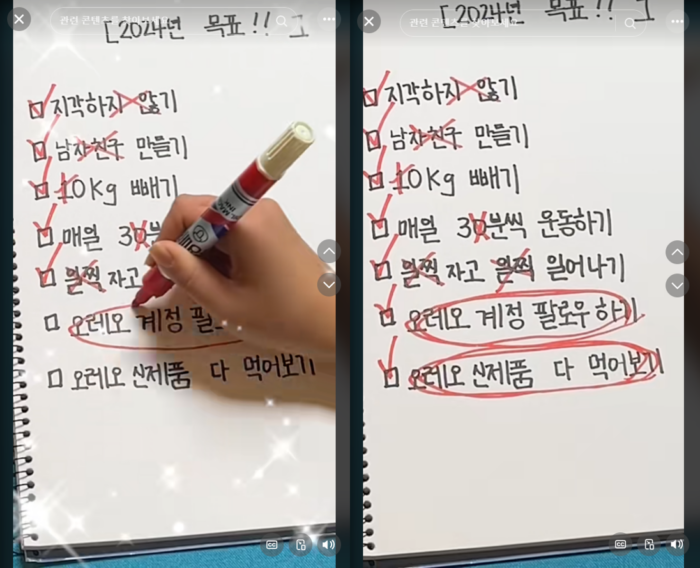 관련 콘텐츠를 찾아보세요
[2024년 목표!!]
지각하지 않기
남자친구 만들기
10kg 빼기
매월 30분
일찍 자고
오레오 계정 팔
오레오 신제품 다 먹어보기
관련 콘텐츠를 찾아보세요
[2024년 목표!!]
지각하지 않기
남자친구 만들기
10kg 빼기
매월 30분씩 운동하기
일찍 자고 일찍 일어나기
오레오 계정 팔로우 하기
오레오 신제품 다 먹어보기